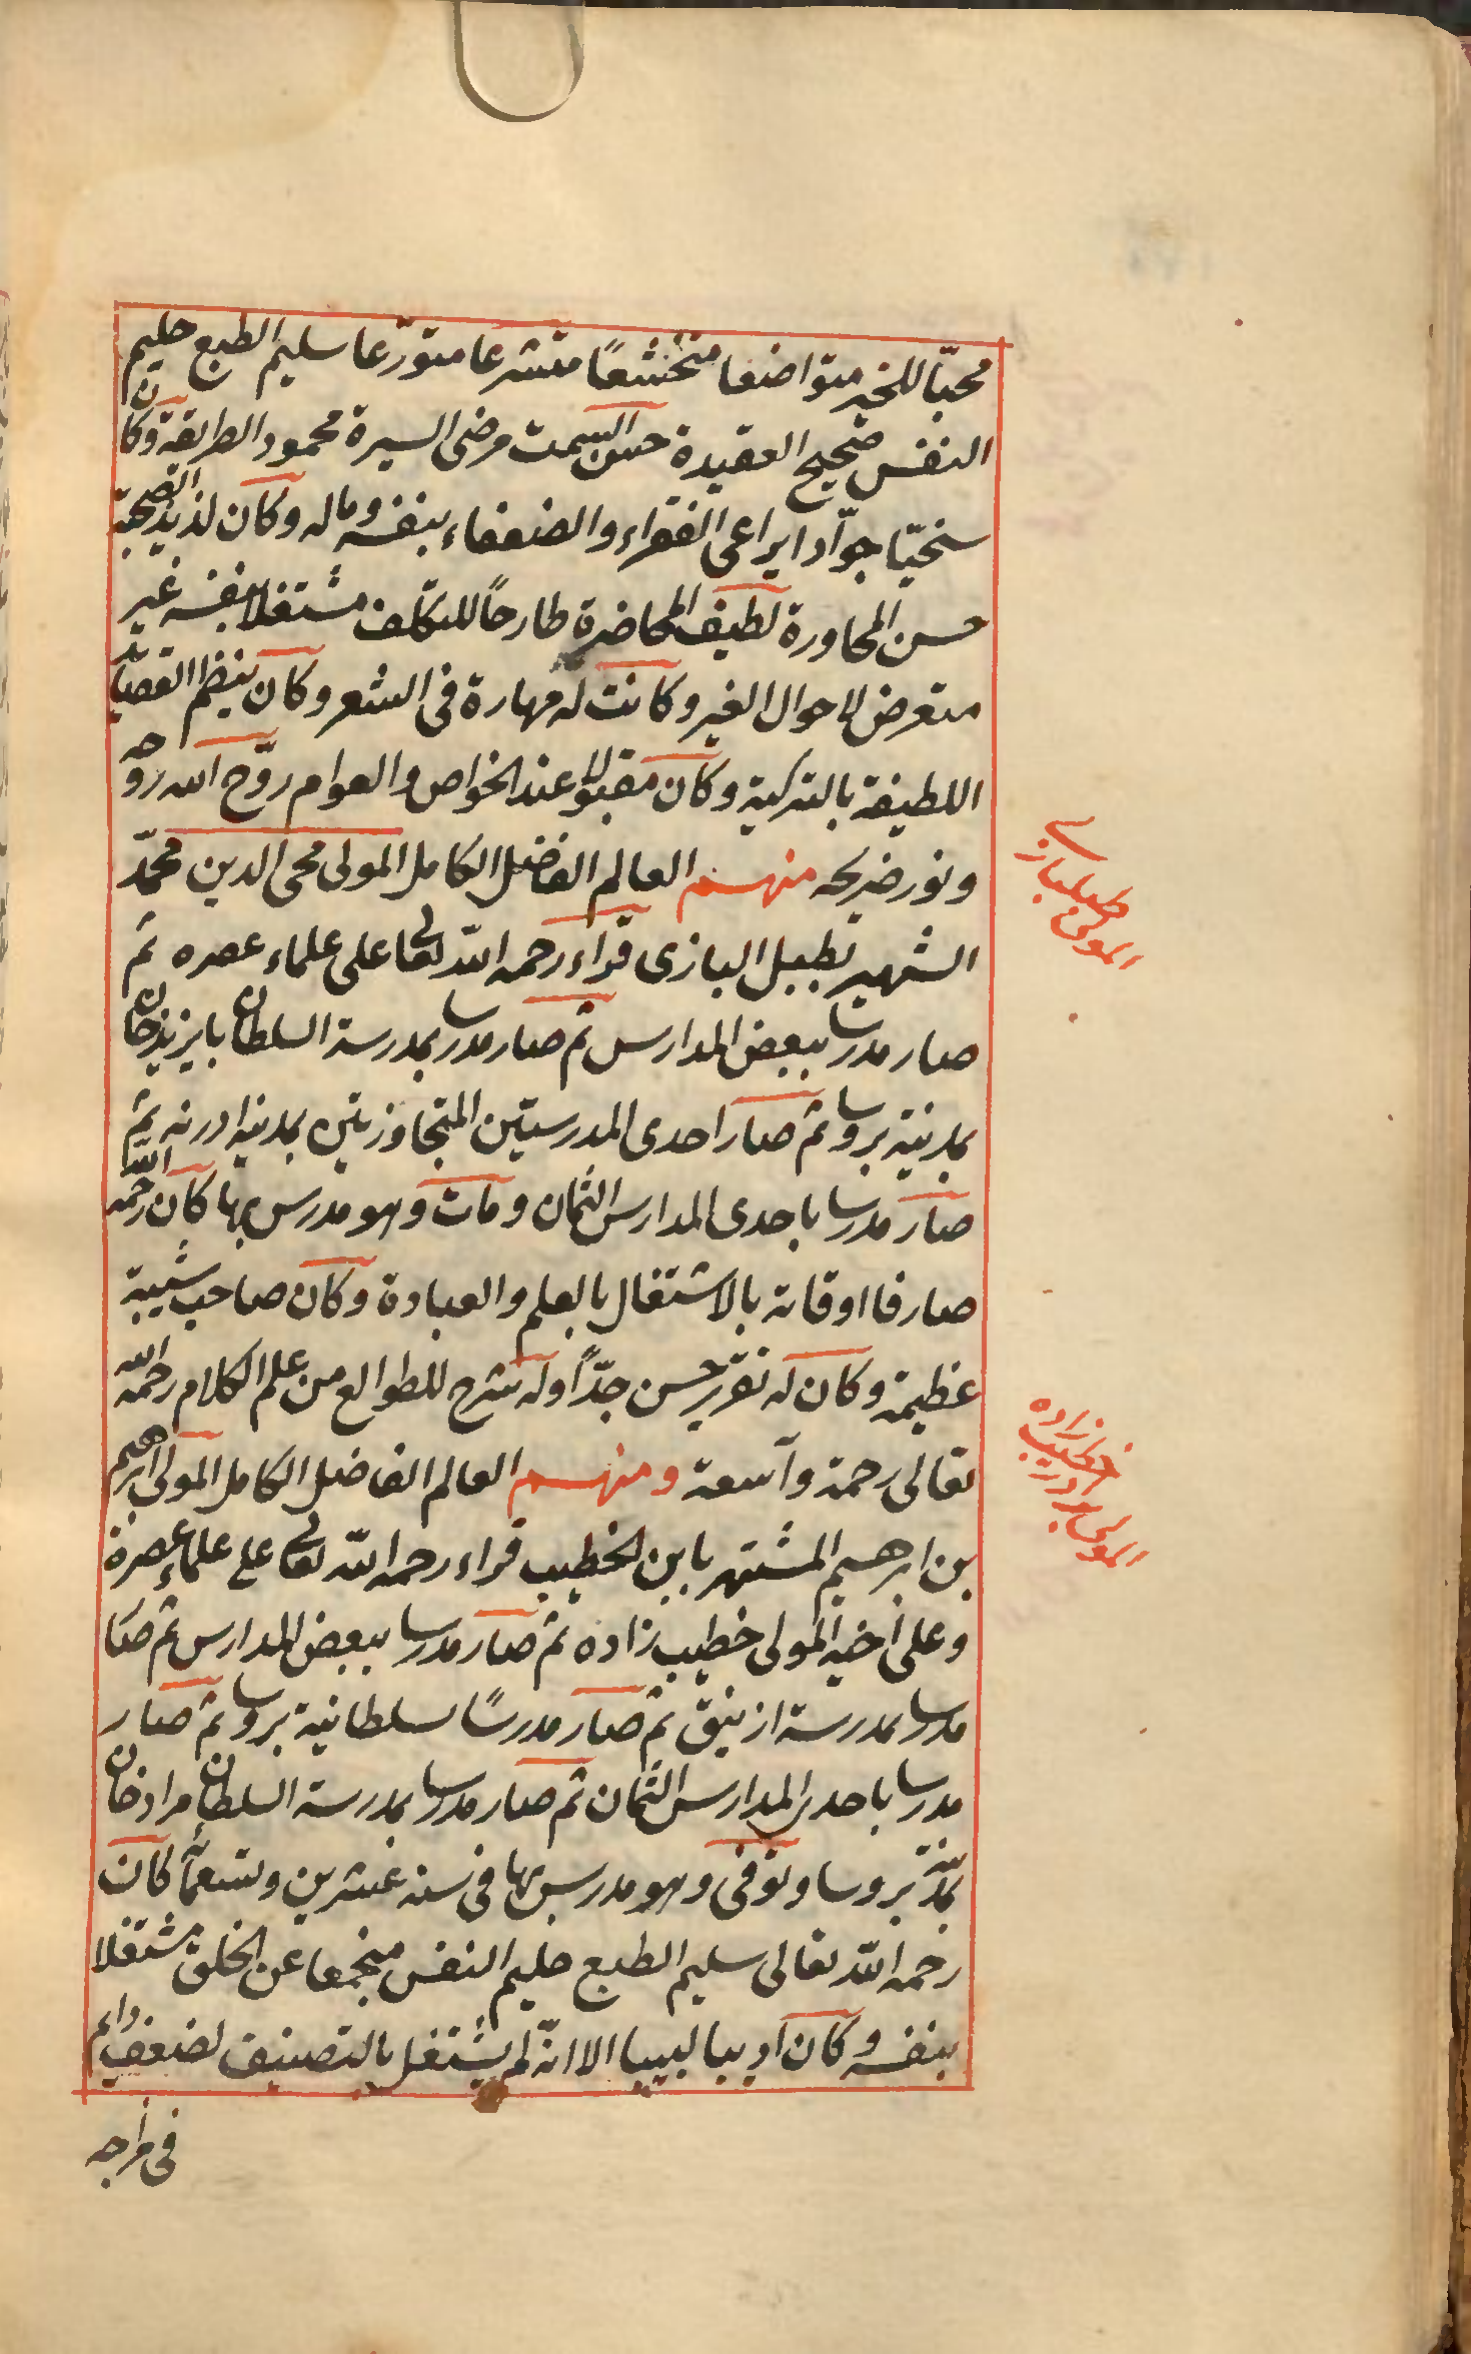 محبّا للخير متواضعا متخشعًا متشرعا متورّعا سليم الطبع حليم
النفس صحيح العقيدة حسن السمت مرضى السيرة محمود الطريقة وكان
سخيّا جوّادا يراعى الفقراء والضعفاء بنفسه وماله وكان لذيذ الصحبة
حسن المحاورة لطيف المحاضرة طارحًا للتكلف مشتغلا بنفسه غير
متعرض لاحوال الغير وكانت له مهارة فى الشعر وكان ينظم القصائد
اللطيفة بالتركية وكان مقبولا عند الخواص والعوام روّح الله روحه
ونور ضريحه منهم العالم الفاضل الكامل المولى محى الدين محمّد
الشهير بطبل البازى قراء رحمه الله تعالى على علماء عصره ثم
صار مدرسا ببعض المدارس ثم صار مدرسا بمدرسة السلطان بايزيدخان
بمدينة بروسا ثم صار احدى المدرستين المتجاوزتين بمدينه ادرنه ثم
صار مدرسا باحدى المدارس الثمان ومات وهو مدرس بها كان رحمه الله
صارفا اوقاته بالاشتغال بالعلم والعبادة وكان صاحب شيبة
عظيمة وكان له تقرير حسن جدًّا وله شرح للطوالع من علم الكلام رحمه الله
تعالى رحمة واسعة ومنهم العالم الفاضل الكامل المولى ابرهيم
بن ابرهيم المشتهر بابن الخطيب قراء رحمه الله تعالى على علماء عصره
وعلى اخيه المولى خطيب زاده ثم صار مدرسا ببعض المدارس ثم صار
مدرسا بمدرسة ازنيق ثم صار مدرسًا بسلطانية بروسا ثم صار
مدرسا باحدى المدارس الثمان ثم صار مدرسا بمدرسة السلطان مرادخان
بمدينة بروسا وتوفى وهو مدرس بها فى سنه عشرين وتسعمائة كان
رحمه الله تعالى سليم الطبع حليم النفس منجمعا عن الخلق مشتغلا
بنفسه وكان اديبا لبيبا الا انّه لم يشتغل بالتصنيف لضعف دائم
فى مزاجه
المولى طبلبازى
المولى برادر خطيب زاده